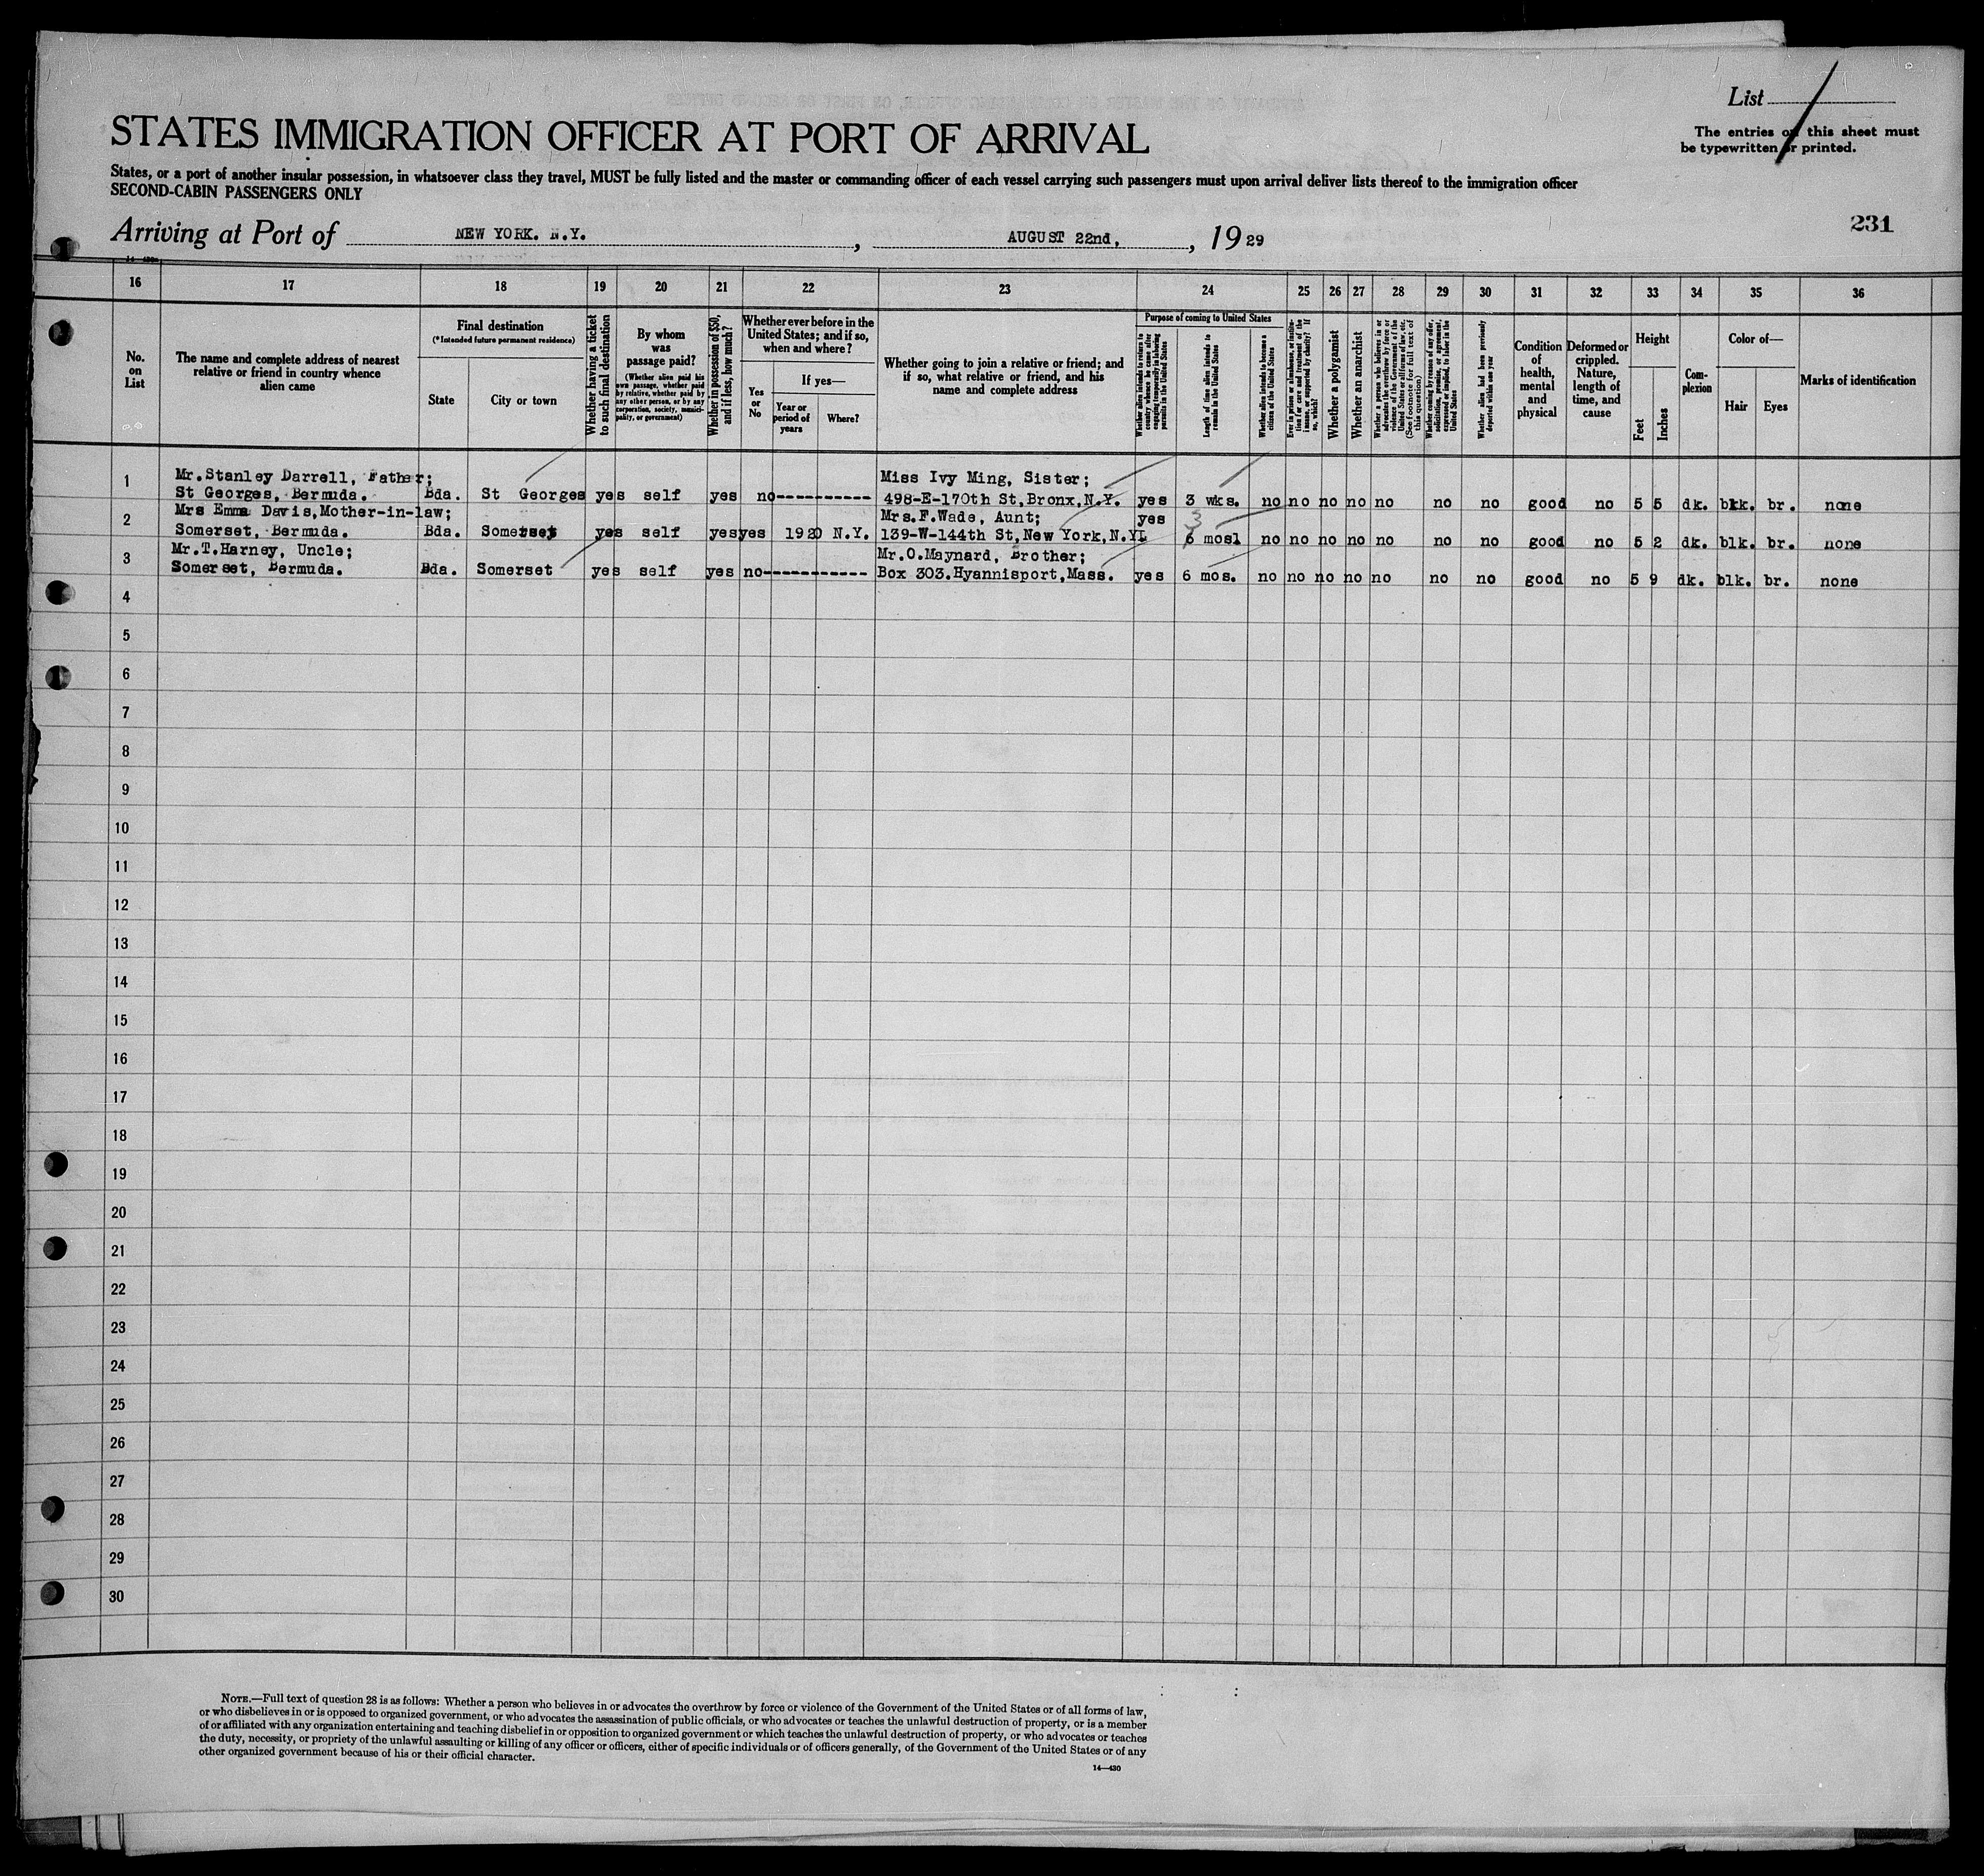 List
The entries on this sheet must
be typewritten or printed.
STATES IMMIGRATION OFFICER AT PORT OF ARRIVAL
States, or a port of another insular possession, in whatsoever class they travel, MUST be fully listed and the master or commanding officer of each vessel carrying such passengers must upon arrival deliver lists thereof to the immigration officer
SECOND-CABIN PASSENGERS ONLY
231
Arriving at Port of NEW YORK. N.Y. , AUGUST 22nd, , 1929
16 17 18 19 20 21 22 23 24 25 26 27 28 29 30 31 32 33 34 35 36
No.
on
List
The name and complete address of nearest
relative or friend in country whence
alien came
Final destination
(*Intended future permanent residence)
State
City or town
Whether having a ticket
to such final destination
By whom
was
passage paid?
(Whether alien paid his
own passage, whether paid
by relative, whether paid by
any other person, or by any
corporation, society, munici-
pality, or government)
Whether in possession of $50,
and if less, how much?
Whether ever before in the
United States; and if so,
when and where?
Yes
or
No
If yes—
Year or
period of
years
Where?
Whether going to join a relative or friend; and
if so, what relative or friend, and his
name and complete address
Purpose of coming to United States
Whether alien intends to return to
country whence he came after
engaging temporarily in laboring
pursuits in the United States
Length of time alien intends to
remain in the United States
Whether alien intends to become a
citizen of the United States
Ever in prison or almshouse, or institu-
tion for care and treatment of the
insane, or supported by charity? If
so, which?
Whether a polygamist
Whether an anarchist
Whether a person who believes in or
advocates the overthrow by force or
violence of the Government of the
United States or all forms of law, etc.
(See footnote for full text of
this question)
Whether coming by reason of any offer,
solicitation, promise, or agreement,
expressed or implied, to labor in the
United States
Whether alien had been previously
deported within one year
Condition
of
health,
mental
and
physical
Deformed or
crippled.
Nature,
length of
time, and
cause
Height
Feet
Inches
Com-
plexion
Color of—
Hair
Eyes
Marks of identification
1 Mr.Stanley Darrell, Father; Miss Ivy Ming, Sister;
St Georges, Bermuda. Bda. St Georges yes self yes no----------- 498-E-170th St,Bronx,N.Y. yes 3 wks. no no no no no no no good no 5 5 dk. blk. br. none
2 Mrs Emma Davis,Mother-in-law; Mrs.F.Wade, Aunt; yes 3
Somerset, Bermuda. Bda. Somerset yes self yes yes 1920 N.Y. 139-W-144th St,New York,N.Y. 6 mosl no no no no no no no good no 5 2 dk. blk. br. none
3 Mr.T.Harney, Uncle; Mr.O.Maynard, Brother;
Somerset, Bermuda. Bda. Somerset yes self yes no----------- Box 303.Hyannisport,Mass. yes 6 mos. no no no no no no no good no 5 9 dk. blk. br. none
4
5
6
7
8
9
10
11
12
13
14
15
16
17
18
19
20
21
22
23
24
25
26
27
28
29
30
NOTE.—Full text of question 28 is as follows: Whether a person who believes in or advocates the overthrow by force or violence of the Government of the United States or of all forms of law,
or who disbelieves in or is opposed to organized government, or who advocates the assassination of public officials, or who advocates or teaches the unlawful destruction of property, or is a member
of or affiliated with any organization entertaining and teaching disbelief in or opposition to organized government or which teaches the unlawful destruction of property, or who advocates or teaches
the duty, necessity, or propriety of the unlawful assaulting or killing of any officer or officers, either of specific individuals or of officers generally, of the Government of the United States or of any
other organized government because of his or their official character.
14—430